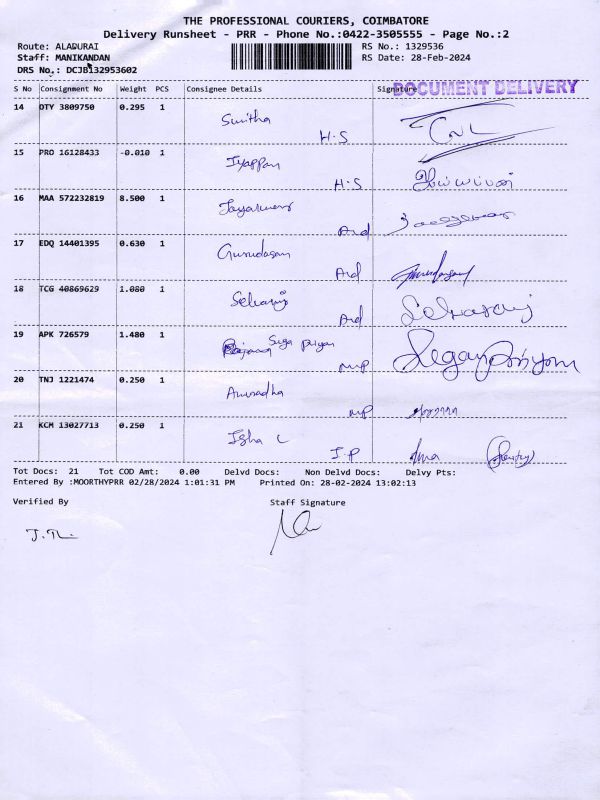 THE PROFESSIONAL COURIERS, COIMBATORE
Delivery Runsheet - PRR - Phone No.:0422-3505555 - Page No.:2
Route: ALADURAI RS No.: 1329536
Staff: MANIKANDAN RS Date: 28-Feb-2024
DRS No.: DCJB132953602
DOCUMENT DELIVERY
S No Consignment No Weight PCS Consignee Details Signature
14 DTY 3809750 0.295 1
Sunitha H.S
15 PRO 16128433 -0.010 1
Iyappan H.S
16 MAA 572232819 8.500 1
Ard
17 EDQ 14401395 0.630 1
Gurudasan Ard
18 TCG 40869629 1.080 1
Selvaraj Ard Selvaraj
19 APK 726579 1.480 1
Siga priyan MP
20 TNJ 1221474 0.250 1
Anuradha MP
21 KCM 13027713 0.250 1
Isha C I.P
Tot Docs: 21 Tot COD Amt: 0.00 Delvd Docs: Non Delvd Docs: Delvy Pts:
Entered By :MOORTHYPRR 02/28/2024 1:01:31 PM Printed On: 28-02-2024 13:02:13
Verified By Staff Signature